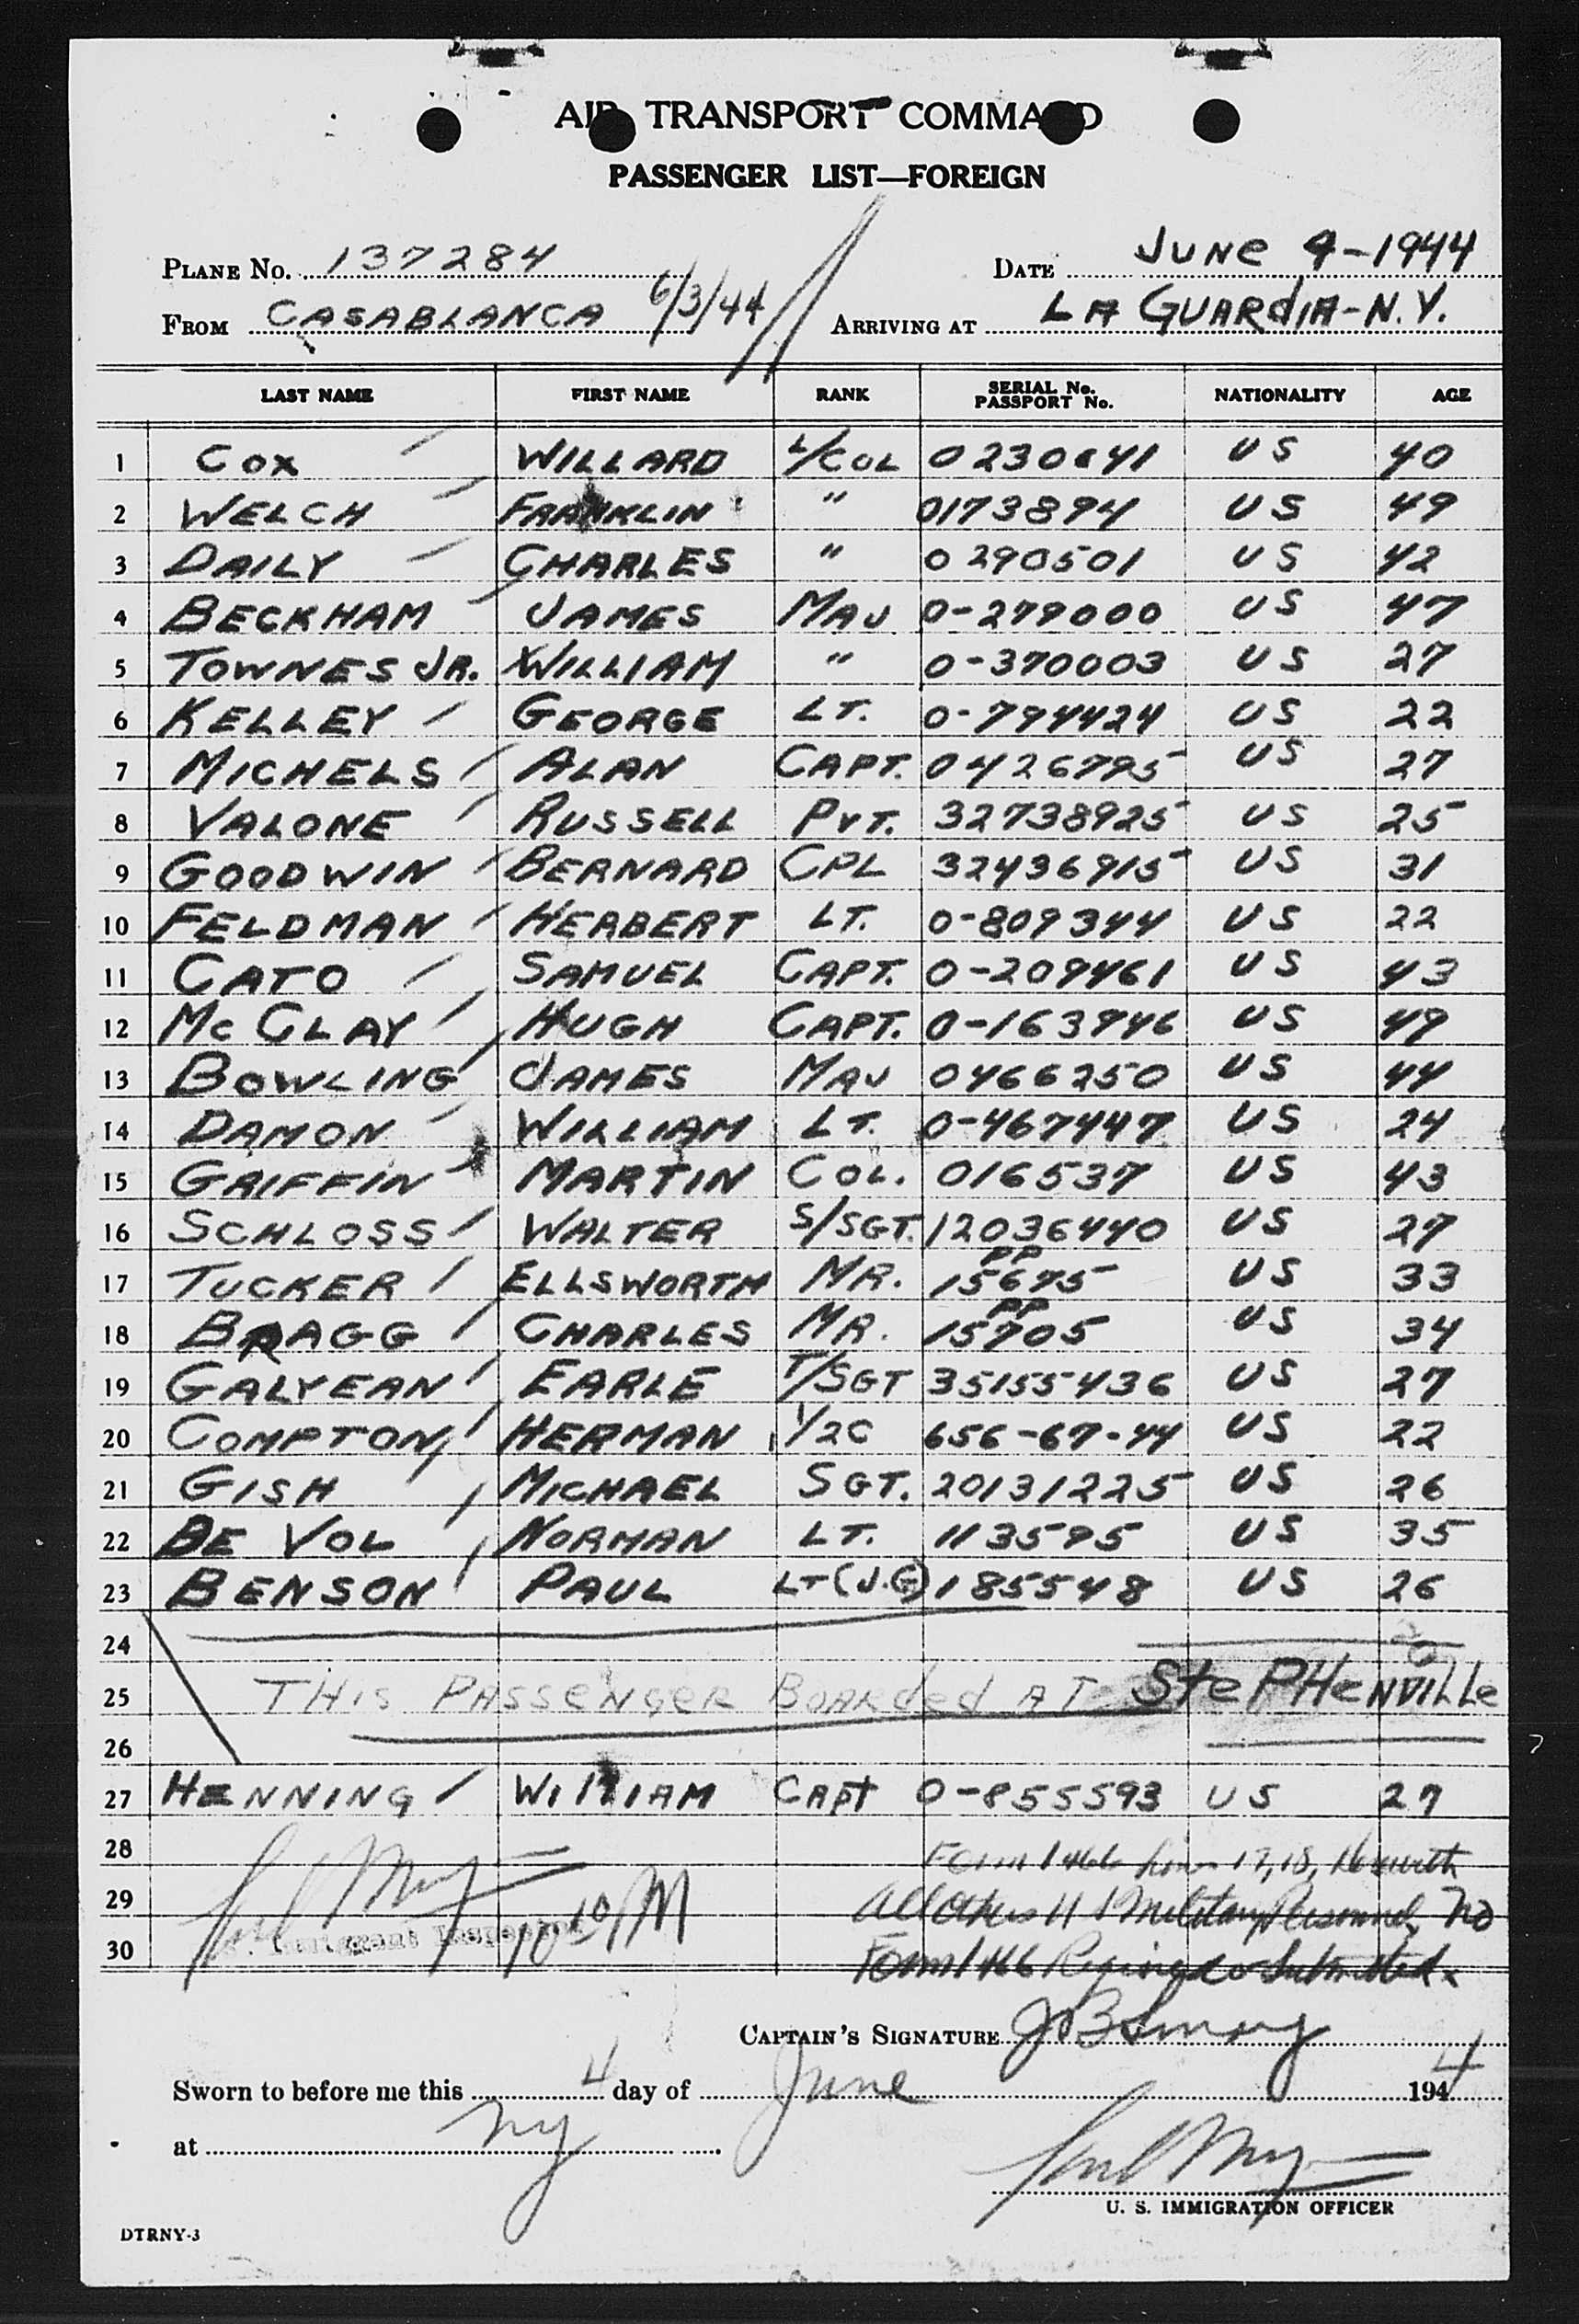 AIR TRANSPORT COMMAND
PASSENGER LIST—FOREIGN
PLANE No. 137284 DATE JUNE 4-1944
FROM CASABLANCA 6/3/44 ARRIVING AT LA GUARDIA-N.Y.
LAST NAME FIRST NAME RANK SERIAL No. PASSPORT No. NATIONALITY AGE
1 COX WILLARD L/COL US 40
2 WELCH FRANKLIN " 0173894 US 49
3 DAILY CHARLES " 0290501 US 42
4 BECKHAM JAMES MAJ 0-279000 US 47
5 TOWNES JR. WILLIAM " 0-370003 US 27
6 KELLEY GEORGE LT. 0-794424 US 22
7 MICHELS ALAN CAPT. 0426795 US 27
8 VALONE RUSSELL PVT. 32738925 US 25
9 GOODWIN BERNARD CPL 32436915 US 31
10 FELDMAN HERBERT LT. 0-809344 US 22
11 CATO SAMUEL CAPT. 0-209461 US 43
12 MCCLAY HUGH CAPT. 0-163946 US 49
13 BOWLING JAMES MAJ 0466250 US 44
14 DAMON WILLIAM LT. 0-467447 US 24
15 GRIFFIN MARTIN COL. 016537 US 43
16 SCHLOSS WALTER S/SGT. 12036440 US 27
17 TUCKER ELLSWORTH MR. PP 15675 US 33
18 BRAGG CHARLES MR. PP 15905 US 34
19 GALYEAN EARLE T/SGT 35155436 US 27
20 COMPTON HERMAN Y/2C 656-67-44 US 22
21 GISH MICHAEL SGT. 20131225 US 26
22 DE VOL NORMAN LT. 113595 US 35
23 BENSON PAUL LT(J.G) 185548 US 26
24
25 THIS PASSENGER BOARDED AT STEPHENVILLE
26
27 HENNING WILLIAM CAPT 0-855593 US 27
28 Form 1466 lines 17, 18, Herewith
29 10 10 PM All others US Military Personnel, No
30 Immigrant Inspector Form 1466 Required or Submitted
CAPTAIN'S SIGNATURE
Sworn to before me this 4 day of June 1944
at NY
U. S. IMMIGRATION OFFICER
DTRNY-3